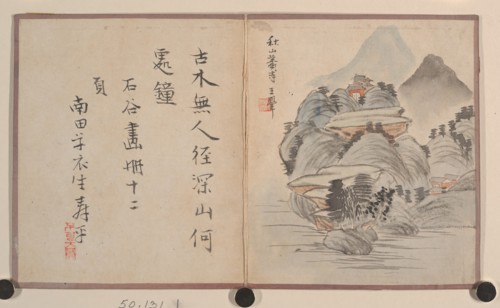 秋山蕭寺 王翬
古木無人径深山何
處鐘
石谷畫冊十二
頁
南田草衣生壽平
50.131 1